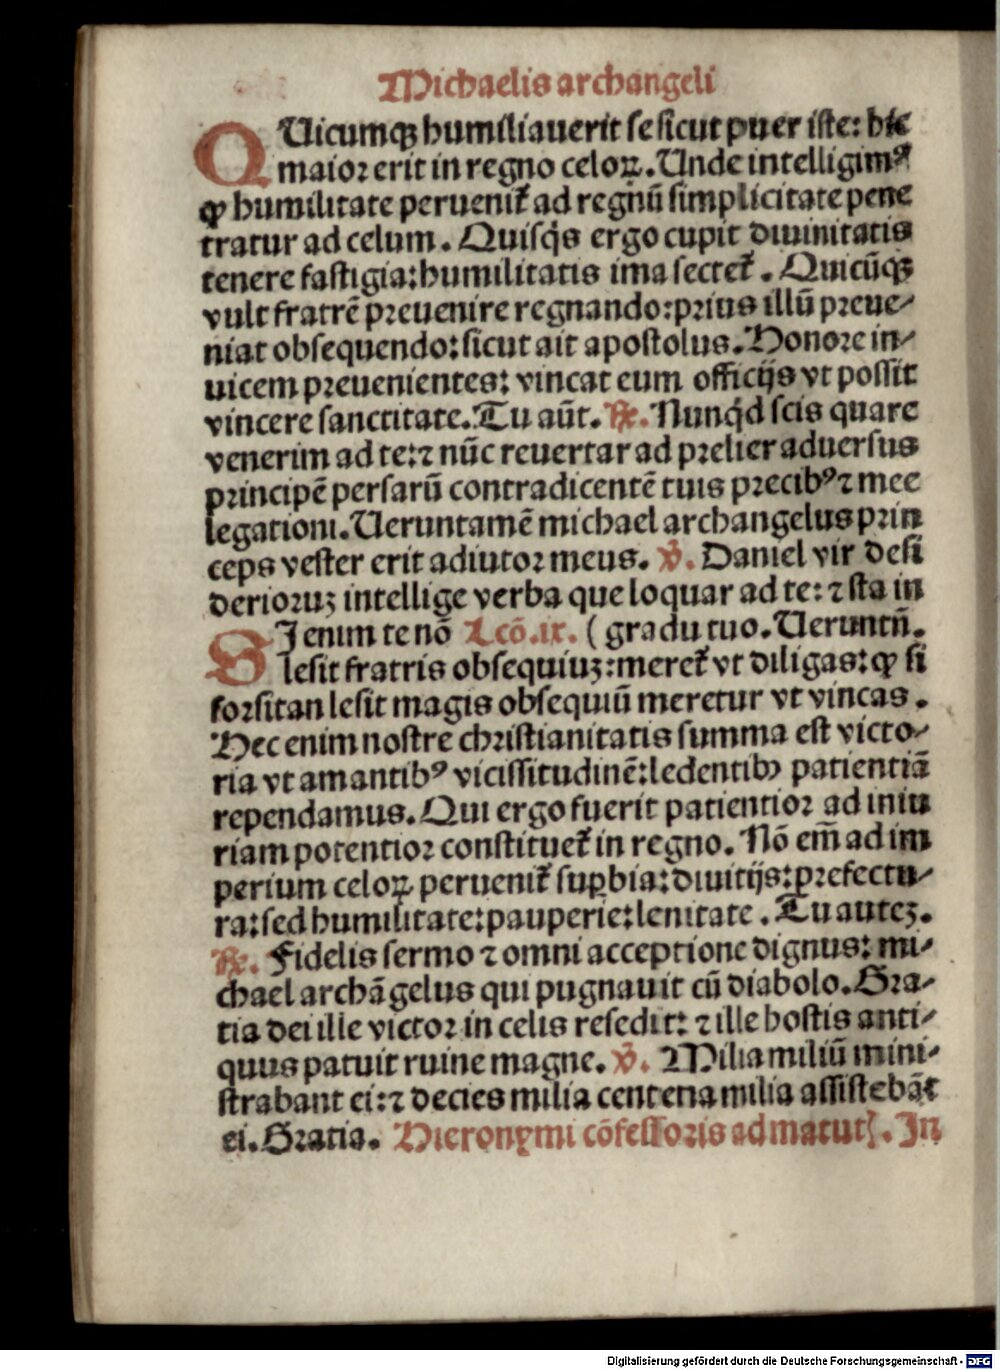 Michaelis archangeli
QUicumqꝫ humiliauerit se sicut puer iste: hic
maior erit in regno celoꝝ. Unde intelligimꝰ
ꝙ humilitate peruenit̃ ad regnũ simplicitate pene
tratur ad celum. Quisq̃s ergo cupit diuinitatis
tenere fastigia: humilitatis ima sectet̃. Quicũqꝫ
vult fratrẽ preuenire regnando: prius illũ preue⸗
niat obsequendo: sicut ait apostolus. Honore in⸗
uicem preuenientes: vincat eum officijs vt possit
vincere sanctitate. Tu aũt. ℟. Nunq̃d scis quare
venerim ad te: ⁊ nũc reuertar ad prelier aduersus
principẽ persarũ contradicentẽ tuis precibꝰ ⁊ mee
legationi. Ueruntamẽ michael archangelus prin
ceps vester erit adiutor meus. ℣. Daniel vir desi
derioruꝫ intellige verba que loquar ad te: ⁊ sta in
SI enim te nõ Lcõ.ix. ( gradu tuo. Ueruntñ.
lesit fratris obsequiuꝫ: meret̃ vt diligas: ꝙ si
forsitan lesit magis obsequiũ meretur vt vincas.
Hec enim nostre christianitatis summa est victo⸗
ria vt amantibꝰ vicissitudinẽ: ledentibꝰ patientiã
rependamus. Qui ergo fuerit patientior ad iniu
riam potentior constituet̃ in regno. Nõ em̃ ad im
perium celoꝝ peruenit̃ suꝑbia: diuitijs: prefectu⸗
ra: sed humilitate: pauperie: lenitate. Tu auteꝫ.
℟. Fidelis sermo ⁊ omni acceptione dignus: mi⸗
chael archãgelus qui pugnauit cũ diabolo. Gra⸗
tia dei ille victor in celis resedit: ⁊ ille hostis anti⸗
quus patuit ruine magne. ℣. Milia miliũ mini⸗
strabant ei: ⁊ decies milia centena milia assistebãt
ei. Gratia. Hieronymi cõfessoris ad matut̃. In
Digitalisierung gefördert durch die Deutsche Forschungsgemeinschaft - DFG